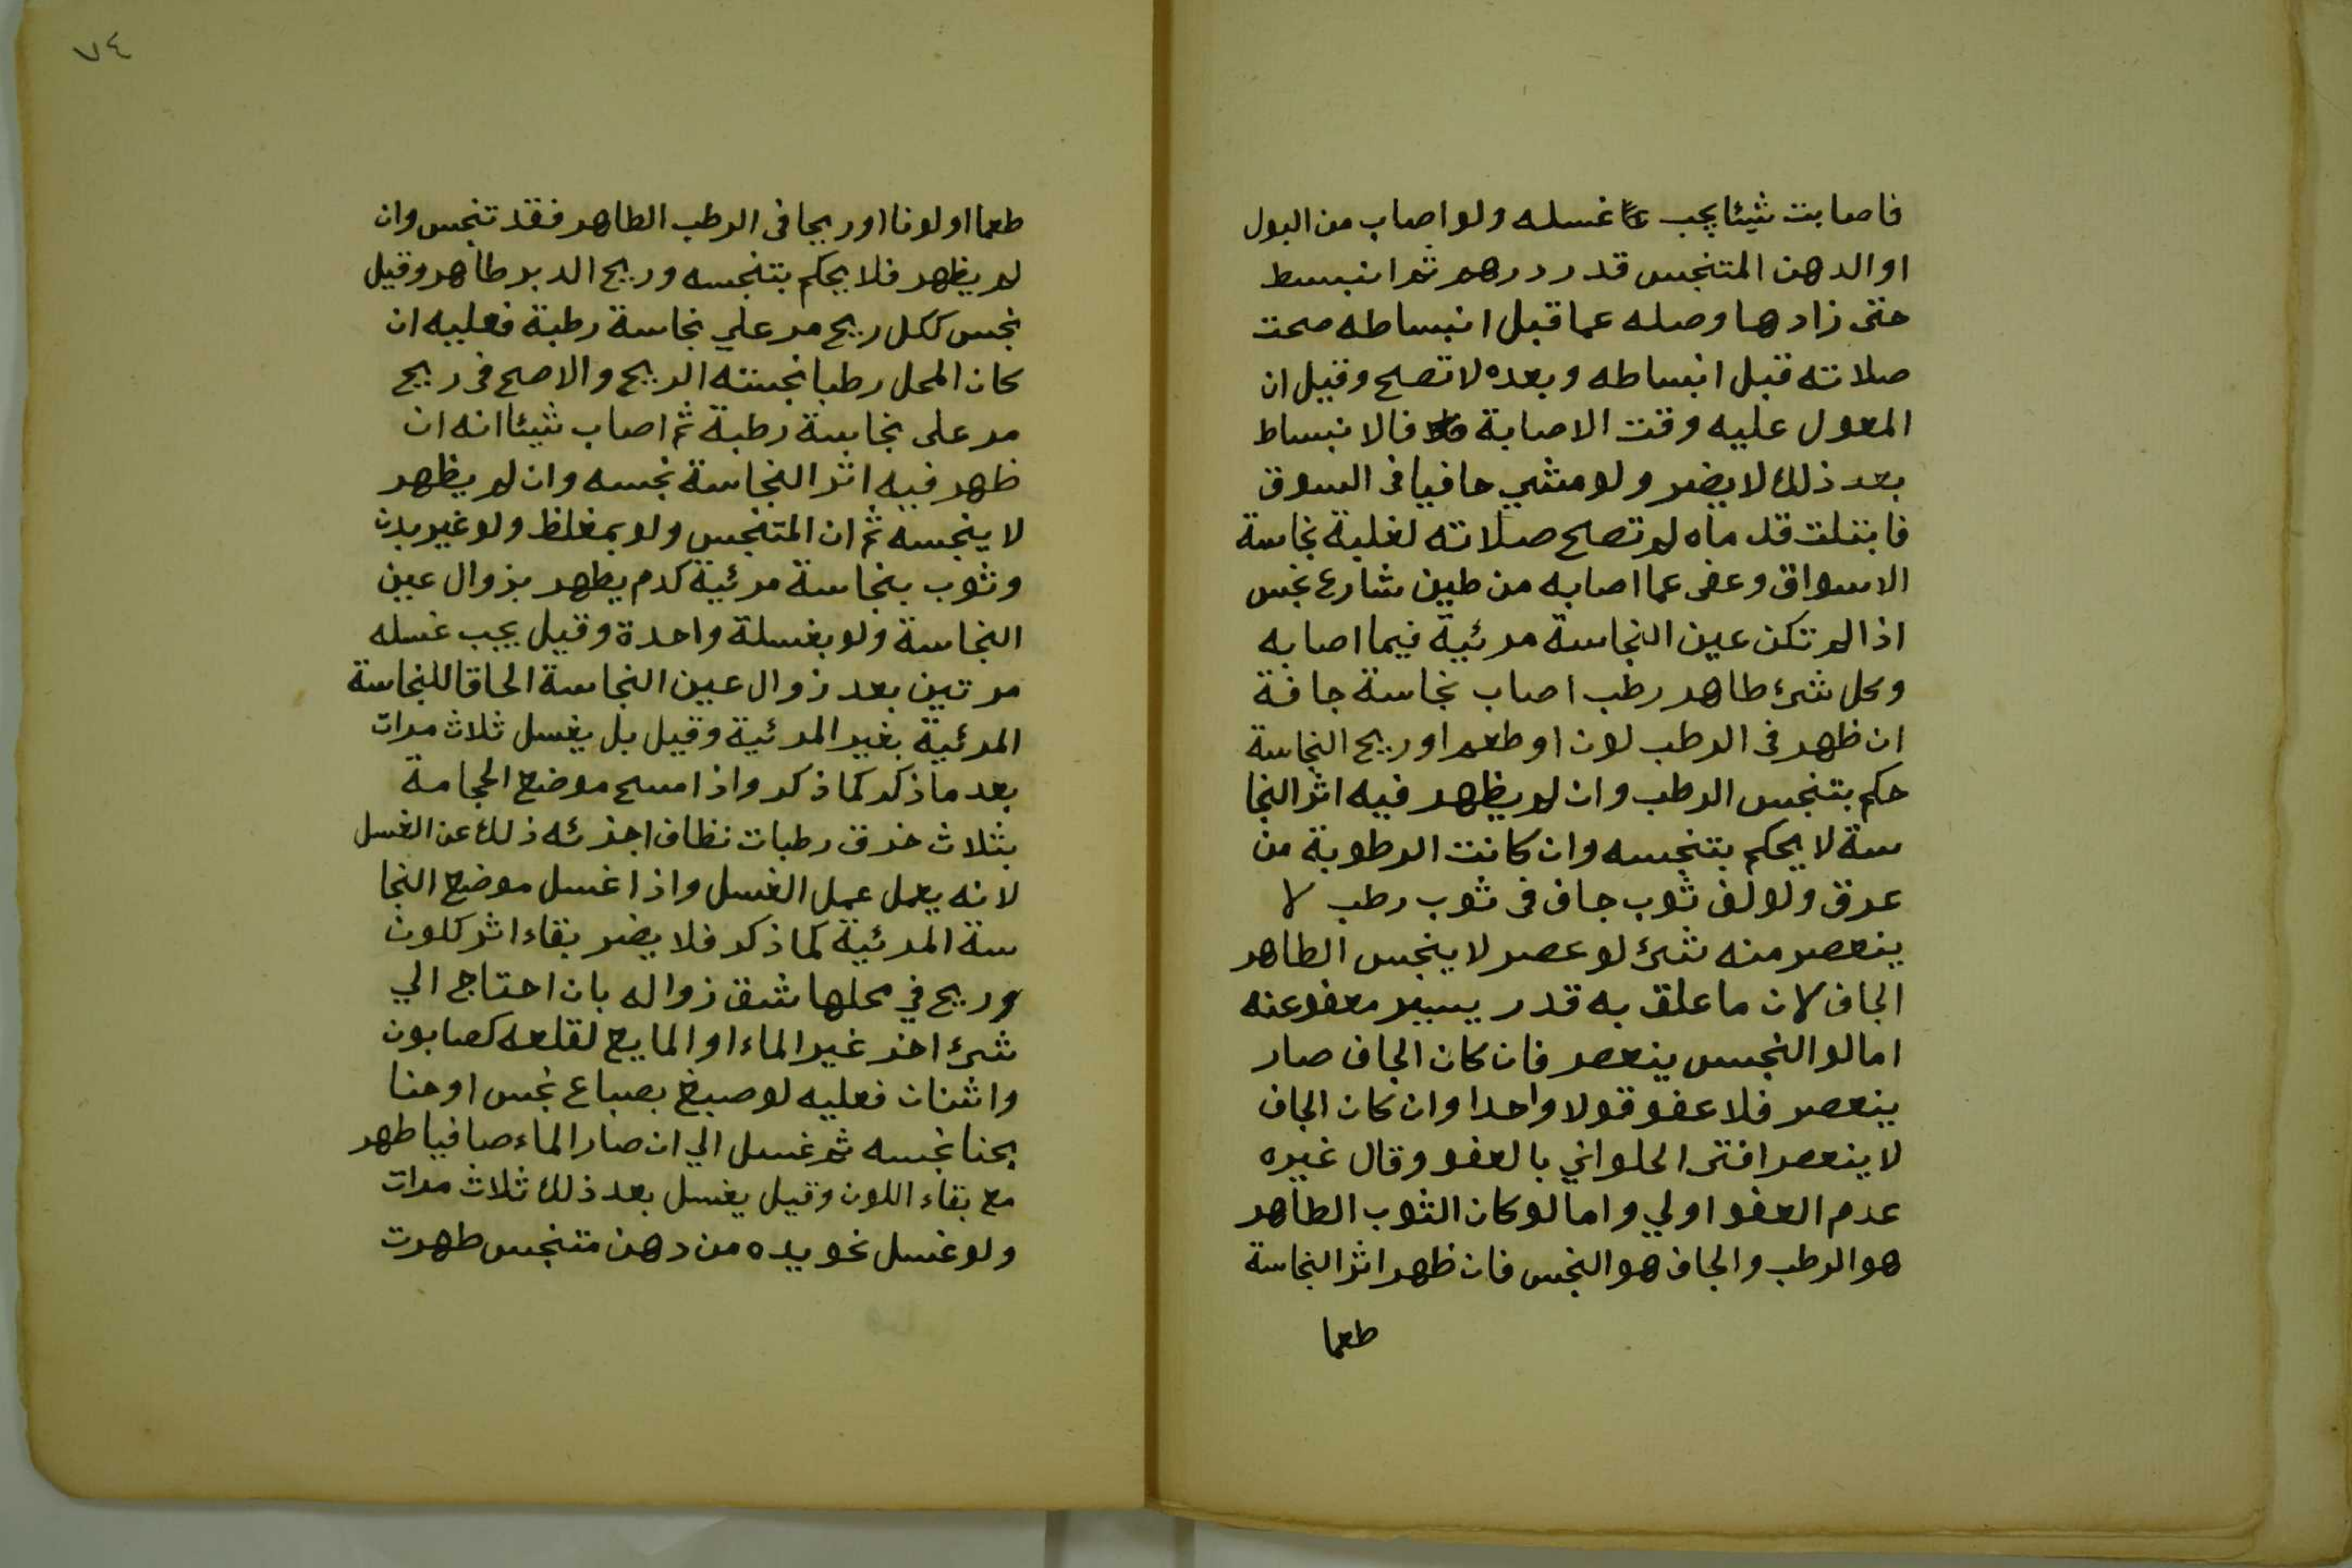 فاصابت شيئا يجب غسله ولو اصاب من البول
او الدهن المتنجس قدر درهم ثم انبسط
حتى زادها وصله عما قبل انبساطه صحت
صلاته قبل انبساطه وبعده لا تصح وقيل ان
المعول عليه وقت الاصابة فالانبساط
بعد ذلك لا يضر ولو مشي حافيا فى السوق
فابتلت قدماه لم تصح صلاته لغلبة نجاسة
الاسواق وعفى عما اصابه من طين شارع نجس
اذا لم تكن عين النجاسة مرئية فيما اصابه
وكل شئ طاهر رطب اصاب نجاسة جافة
ان ظهر فى الرطب لون او طعم او ريح النجاسة
حكم بتنجس الرطب وان لم يظهر فيه اثر النجا
سة لا يحكم بتنجسه وان كانت الرطوبة من
عرق ولو لف ثوب جاف فى ثوب رطب لا
ينعصر منه شئ لو عصر لا ينجس الطاهر
الجاف لان ما علق به قدر يسير معفو عنه
اما لو النجس ينعصر فان كان الجاف صار
ينعصر فلا عفو قولا واحدا وان كان الجاف
لا ينعصر افتى الحلواني بالعفو وقال غيره
عدم العفو اولي واما لو كان الثوب الطاهر
هو الرطب والجاف هو النجس فان ظهر اثر النجاسة
طعما
٧٤
طعما او لونا او ريحا فى الرطب الطاهر فقد تنجس وان
لم يظهر فلا يحكم بتنجسه وريح الدبر طاهر وقيل
نجس ككل ريح مر علي نجاسة رطبة فعليه ان
كان المحل رطبا نجسته الريح والاصح فى ريح
مر على نجاسة رطبة ثم اصاب شيئا انه ان
ظهر فيه اثر النجاسة نجسه وان لم يظهر
لا ينجسه ثم ان المتنجس ولو بمغلظ ولو غير بدن
وثوب بنجاسة مرئية كدم يطهر بزوال عين
النجاسة ولو بغسلة واحدة وقيل يجب غسله
مرتين بعد زوال عين النجاسة الحاقا للنجاسة
المرئية بغير المرئية وقيل بل يغسل ثلاث مرات
بعد ما ذكر كما ذكر واذا مسح موضع الحجامة
بثلاث خرق رطبات نظاف اجزئه ذلك عن الغسل
لانه يعمل عمل الغسل واذا غسل موضع النجا
سة المرئية كما ذكر فلا يضر بقاء اثر كلون
وريح في محلها شق زواله بان احتاج الي
شئ اخر غير الماء او المايع لقلعه كصابون
واشنان فعليه لو صبغ بصباع نجس او حنا
بحنا نجسه ثم غسل الي ان صار الماء صافيا طهر
مع بقاء اللون وقيل يغسل بعد ذلك ثلاث مرات
ولو غسل نحو يده من دهن متنجس طهرت